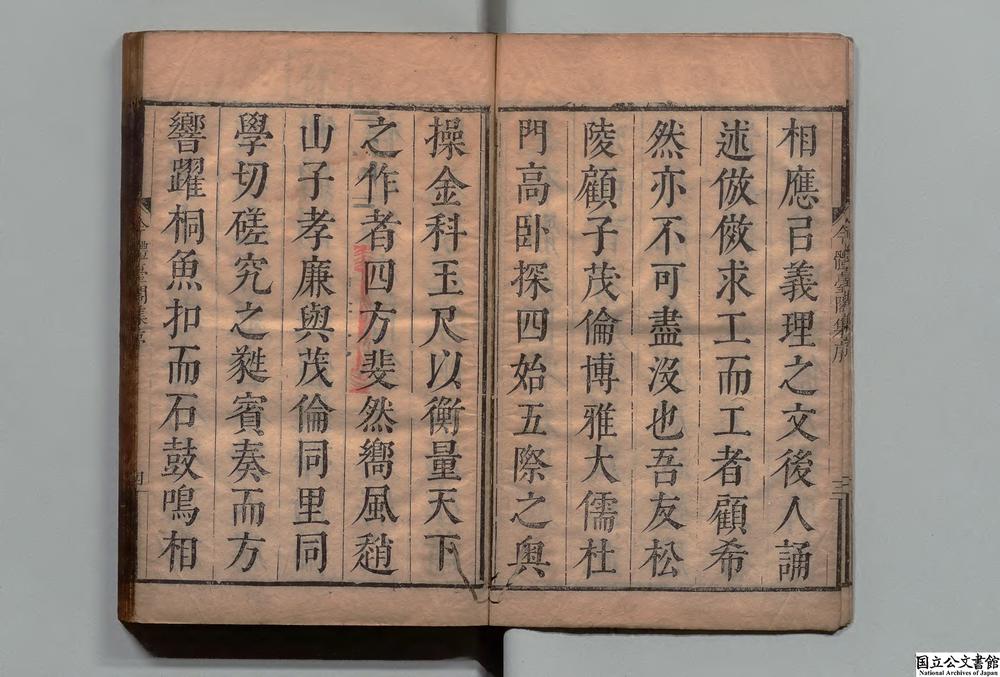 相應吕義理之文後人誦
述倣傚求工而工者顧希
然亦不可盡沒也吾友松
陵顧子茂倫博雅大儒杜
門高卧探四始五際之奥
操金科玉尺以衡量天下
之作者四方斐然嚮風稍
山子孝廉與茂倫同里同
學切磋究之蕤賓奏而方
響躍桐魚扣而石鼓鳴相
今體臺閣集序
三
四
国立公文書館
National Archives of Japan